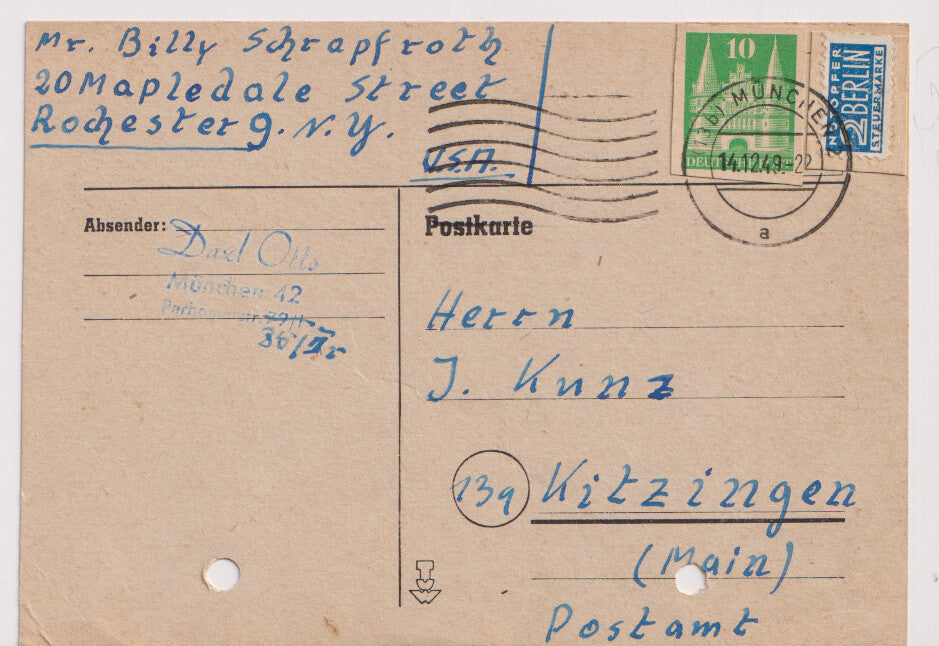 Mr. Billy Schrapfroth
20 Mapledale Street
Rochester 9. N.Y.
U.S.A.
10
DEUTSCHE POST
NOTOPFER
2 BERLIN
STEUERMARKE
(13b) MÜNCHEN 2
14.12.49.-22
a
Absender:
Darl Otto
München 42
str. 79/I
36/Ir
Postkarte
Herrn
J. Kunz
13a Kitzingen
(Main)
Postamt